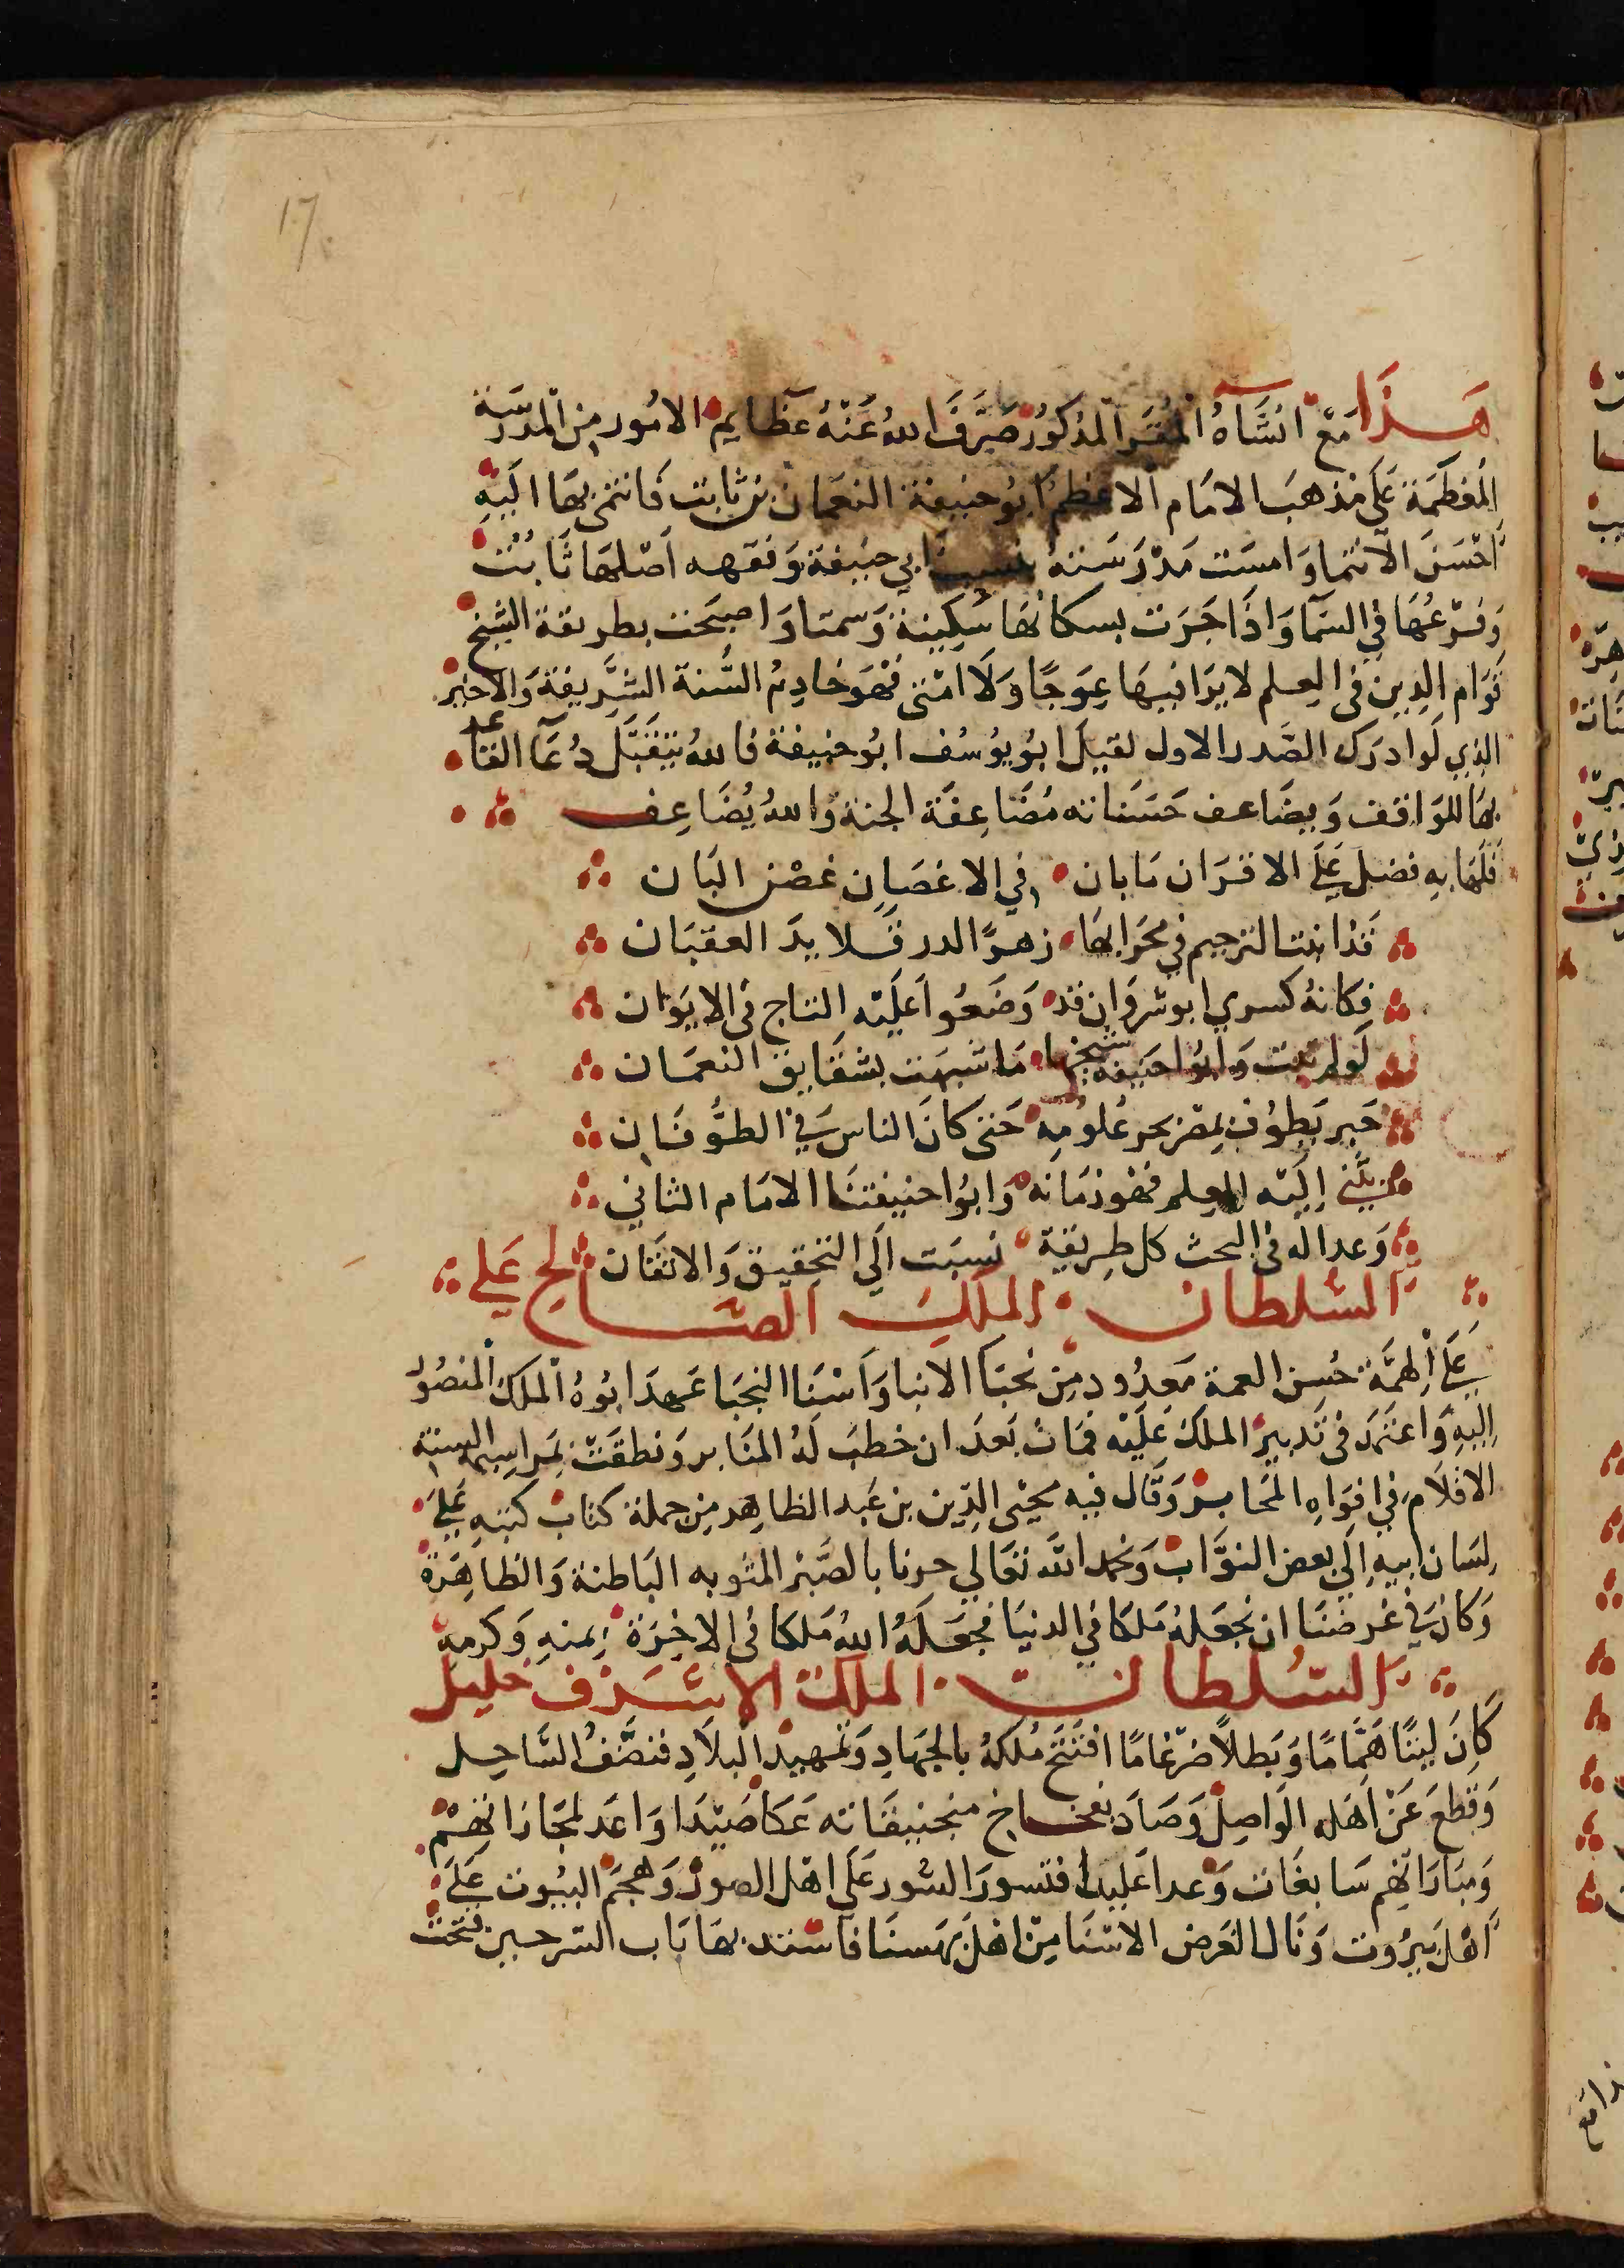 17
هذا مع انشاه المقر المذكور صرف الله عنه عظايم الامور من المدرسة
المعظمة على مذهب الامام الاعظم ابو حنيفة النعمان بن ثابت فانتمى بها اليه
احسن الانتما وامست مدرسته ابي حنيفة وفقهه اصلها ثابت
وفرعها في السما واذا جرت بسكانها سكينة وسمتا واصبحت بطريقة الشيخ
قوام الدين في العلم لا يرا فيها عوجا ولا امتى فهو خادم السنة الشريفة والاخير
الذي لو ادرك الصدر الاول لقيل ابو يوسف ابو حنيفة فالله يتقبل دعا الفا عد
بها للواقف ويضاعف حسناته مضاعفة الجنة والله يضاعف
فلها به فضل على الاقران ما بان في الاغصان غصن البان
قذانت الترجيم في محرابها زهوا لدر قلايد العقبان
فكانه كسري ابو شروان قد وضعوا عليه التاج في الايوان
لو لم تبت وابوا حنيفة شيخها ما شبهت بشقايق النعمان
حبر يطوف بمصر بحر علومه حتى كان الناس في الطوفان
من يثني اليه العلم فهو زمانه وابوا حنيفتنا الامام الثاني
وعداله في البحث كل طريقة نسبت الي التحقيق والاتقان
السلطان الملك الصالح علي
علي الهمة حسن العمة معدود من نجبا الابنا واسنا النجبا عهد ابوه الملك المنصور
اليه واعتمد في تدبير الملك عليه فمات بعد ان خطب له المنابر ونطقت بمراسيمه السنة
الاقلام في افواه المحابر وقال فيه محيى الدين بن عبد الظاهر من جملة كتاب كتبه على
لسان ابيه الي بعض النواب ونحمد الله تعالي حرنا بالصبر المثوبه الباطنة والظاهرة
وكان في غرضنا ان نجعله ملكا في الدنيا فجعله الله ملكا في الاخرة بمنه وكرمه
السلطان الملك الاشرف خليل
كان ليثا همّاما وبطلا ضرغاما افتتح ملكه بالجهاد وتمهيد البلاد فنصف الساحل
وقطع عن اهله الواصل وصاد بفخاخ منجنيقاته عكا صيدا واعد لمجازاتهم
ومباراتهم سابغات وعدا عليها فتسور السور على اهل الصور وهجم البيوت على
اهل بيروت ونال الغرض الاسنا من اهل بهسنا فاستند بها باب السرحين فتحت